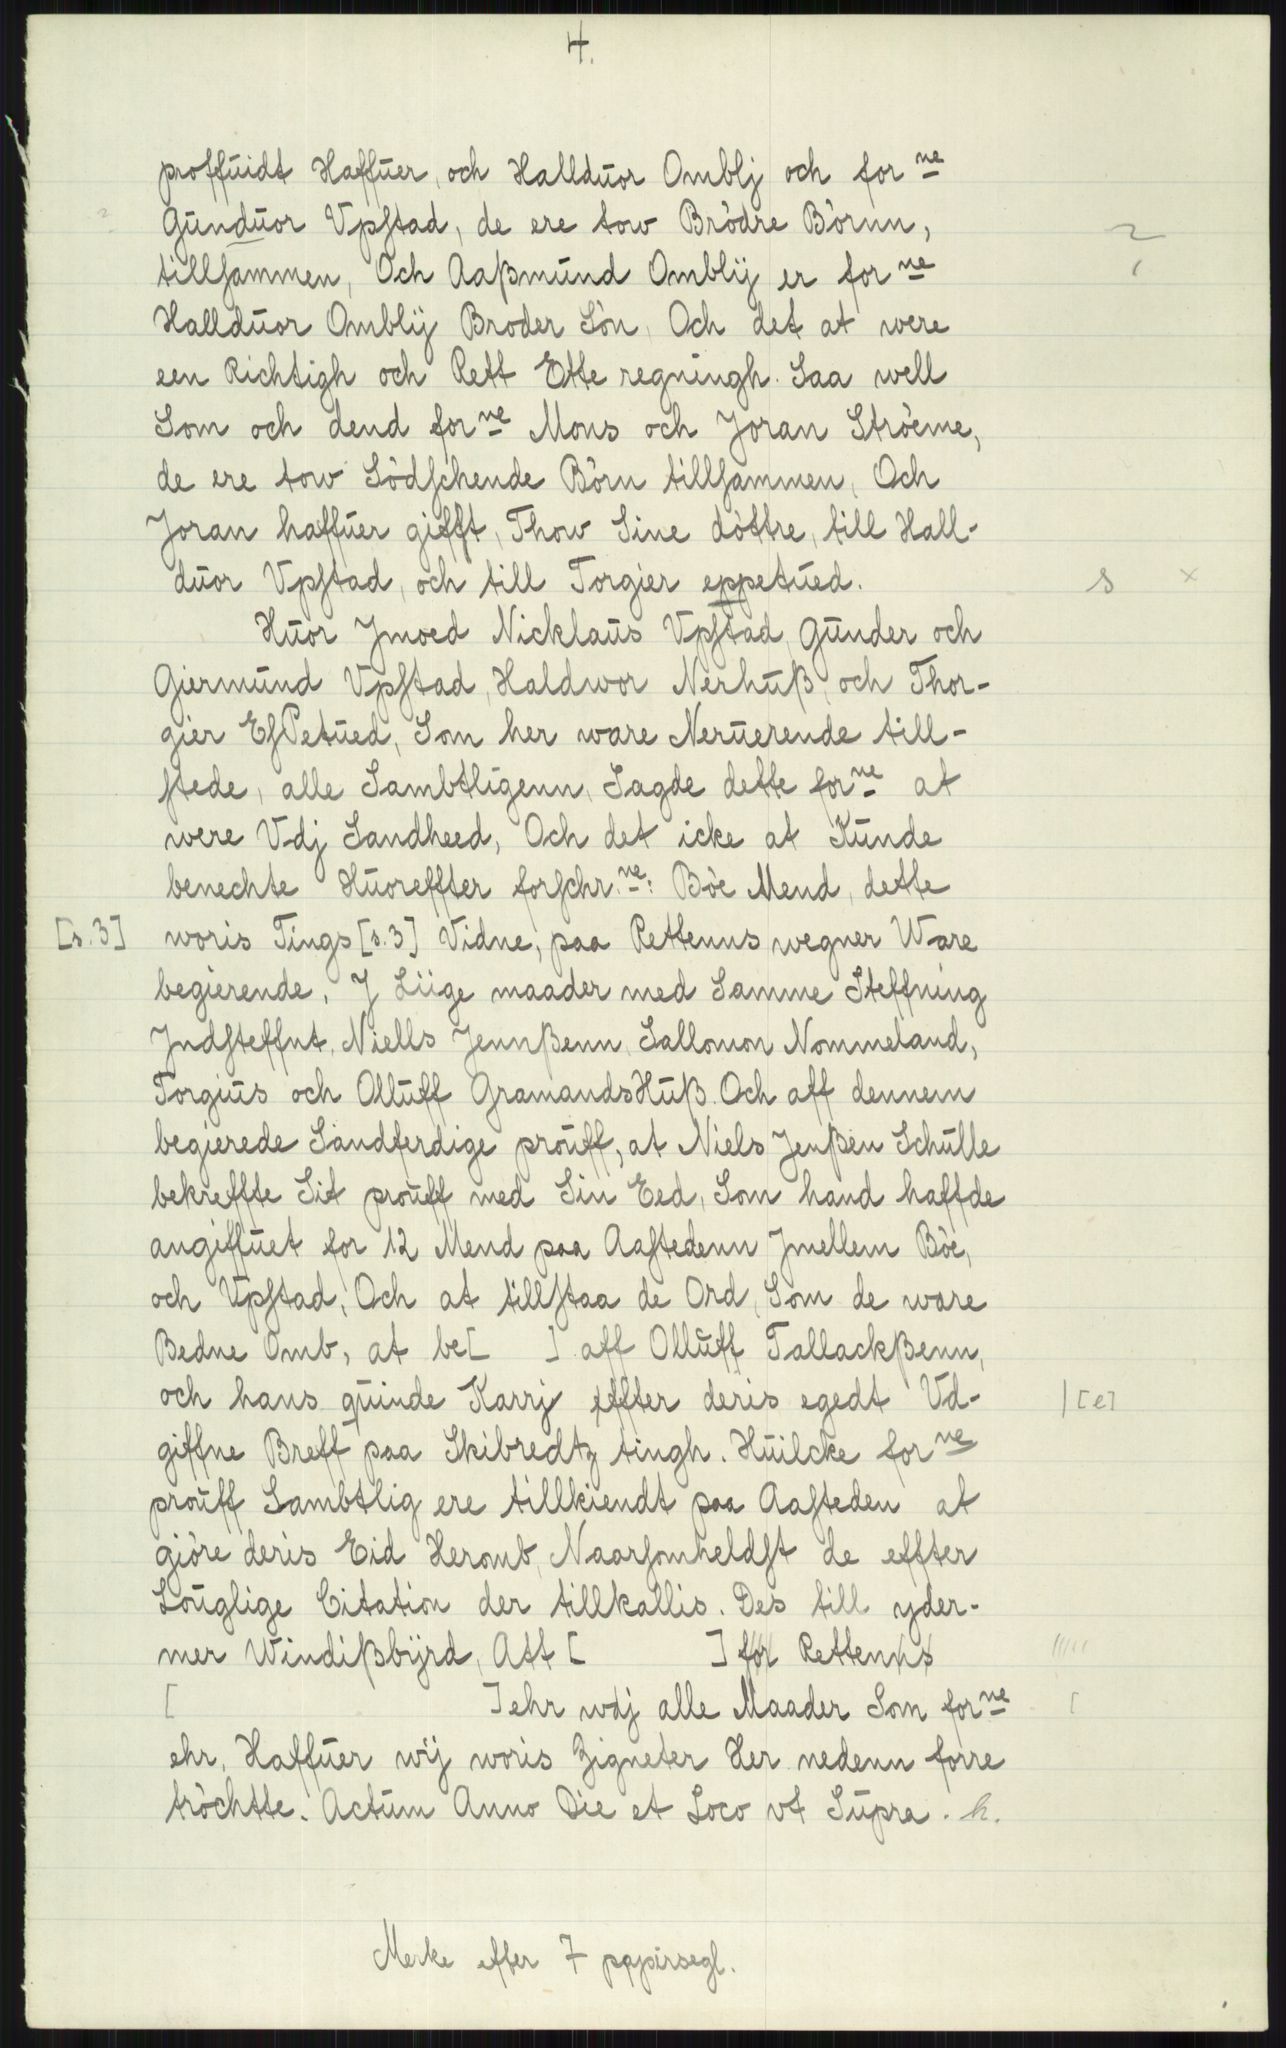 4.
proffuidt Haffuer, och Hallduor Omblj och for ne
Gunduor Vpstad, de ere tow Brödre Börnn,
tillsammen, Och Aaßmund Omblij er for ne
Hallduor Omblij Broder Sön, Och det at were
een Richtigh och Rett Ette regningh. Saa well
Som och dend for ne Mons och Joran Ströeme,
de ere tow Södschende Börn tillsammen, Och
Joran haffuer gifft, Thow Sine döttre, till Hall-
duor Vpstad, och till Torgier eppetued.
Huor Jmoed Nicklaus Vpstad, Gunder och
Giermund Vpstad, Haldwor Nerhuß, och Thor-
gier EsPetued, Som her ware Neruerende till-
stede, alle Sambtligenn, Sagde dette for ne at
were Vdj Sandheed, Och det icke at Kunde
benechte Huoreffter forschr. ne: Böe Mend, dette
[s. 3] woris Tings [s. 3] Vidne, paa Rettenns wegner Ware
begierende. J Liige maader med Samme Steffning
Jndsteffnt, Niells Jennßenn, Sallomon Nommeland,
Torgius och Olluff GramandsHuß. Och aff dennem
begierede Sandferdige prouff, at Niels Jenßen Schulle
bekreffte Sit prouff med Sin Eed, Som hand haffde
angiffuet for 12 Mend paa Aastedenn Jmellem Böe,
och Vpstad, Och at tillstaa de Ord, Som de ware
Bedne Omb, at be[ ] aff Olluff Tallackßenn,
och hans quinde Karrj effter deris egedt Vd- | [e]
giffne Breff paa Skibredtz tingh. Huilcke for ne
prouff Sambtlig ere tillkiendt paa Aasteden at
giöre deris Eid Heromb, Naarsomheldst de effter
Louglige Citation der tillkallis. Des till yder-
mer Windißbijrd, Att [ ] for Rettenns
[ ] ehr wdj alle Maader Som for ne [
ehr, Haffuer wij woris Zigneter Her nedenn forre
tröchtte. Actum Anno Die et Loco vt Supra. h.
Merke efter 7 papirsegl.